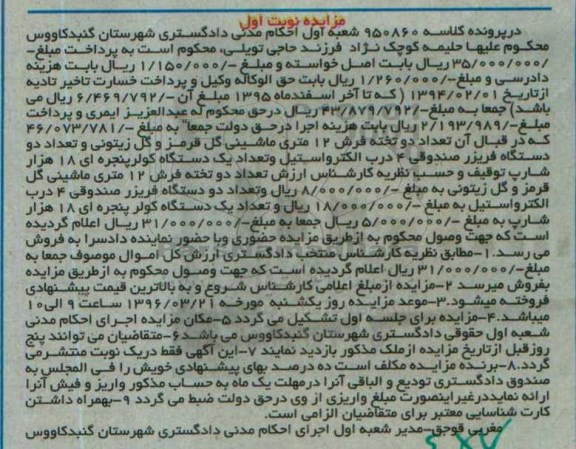 مزایده نوبت اول
درپرونده کلاسه ۹۵۰۸۶۰ شعبه اول احکام مدنی دادگستری شهرستان گنبدکاووس
محکوم علیها حلیمه کوچک نژاد فرزند حاجی تویلی، محکوم است به پرداخت مبلغ-
/۳۵/۰۰۰/۰۰۰ ریال بابت اصل خواسته و مبلغ -/۱/۱۵۰/۰۰۰ ریال بابت هزینه
دادرسی و مبلغ-/۱/۲۶۰/۰۰۰ ریال بابت حق الوکاله وکیل و پرداخت خسارت تاخیر تادیه
ازتاریخ ۱۳۹۴/۰۲/۰۱ (که تا آخر اسفندماه ۱۳۹۵ مبلغ آن -/۶/۴۶۹/۷۹۲ ریال می
باشد) جمعا به مبلغ-/۴۳/۸۷۹/۷۹۲ ریال درحق محکوم له عبدالعزیز ایمری و پرداخت
مبلغ-/۲/۱۹۳/۹۸۹ ریال بابت هزینه اجرا درحق دولت جمعا" به مبلغ -/۴۶/۰۷۳/۷۸۱
که در قبال آن تعداد دو تخته فرش ۱۲ متری ماشینی گل قرمز و گل زیتونی و تعداد دو
دستگاه فریزر صندوقی ۴ درب الکترواستیل وتعداد یک دستگاه کولرپنجره ای ۱۸ هزار
شارپ توقیف و حسب نظریه کارشناس ارزش تعداد دو تخته فرش ۱۲ متری ماشینی گل
قرمز و گل زیتونی به مبلغ -/۸/۰۰۰/۰۰۰ ریال وتعداد دو دستگاه فریزر صندوقی ۴ درب
الکترواستیل به مبلغ -/۱۸/۰۰۰/۰۰۰ ریال و تعداد یک دستگاه کولر پنجره ای ۱۸ هزار
شارپ به مبلغ -/۵/۰۰۰/۰۰۰ ریال جمعا به مبلغ-/۳۱/۰۰۰/۰۰۰ ریال اعلام گردیده
است که جهت وصول محکوم به ازطریق مزایده حضوری وبا حضور نماینده دادسرا به فروش
می رسد. ۱-مطابق نظریه کارشناس منتخب دادگستری ارزش کل اموال موصوف جمعا به
مبلغ-/۳۱/۰۰۰/۰۰۰ ریال اعلام گردیده است که جهت وصول محکوم به ازطریق مزایده
بفروش میرسد ۲-مزایده ازمبلغ اعلامی کارشناس شروع و به بالاترین قیمت پیشنهادی
فروخته میشود.۳-موعد مزایده روز یکشنبه مورخه ۱۳۹۶/۰۳/۲۱ ساعت ۹ الی۱۰
میباشد.۴-مزایده برای جلسه اول تشکیل می گردد ۵-مکان مزایده اجرای احکام مدنی
شعبه اول حقوقی دادگستری شهرستان گنبدکاووس می باشد۶-متقاضیان می توانند پنج
روزقبل ازتاریخ مزایده ازملک مذکور بازدید نمایند ۷-این آگهی فقط دریک نوبت منتشرمی
گردد.۸-برنده مزایده مکلف است ده درصد بهای پیشنهادی خویش را فی المجلس به
صندوق دادگستری تودیع و الباقی آنرا درمهلت یک ماه به حساب مذکور واریز و فیش آنرا
ارائه نمایددرغیراینصورت مبلغ واریزی از وی درحق دولت ضبط می گردد ۹-بهمراه داشتن
کارت شناسایی معتبر برای متقاضیان الزامی است.
مغربی قوجق-مدیر شعبه اول اجرای احکام مدنی دادگستری شهرستان گنبدکاووس